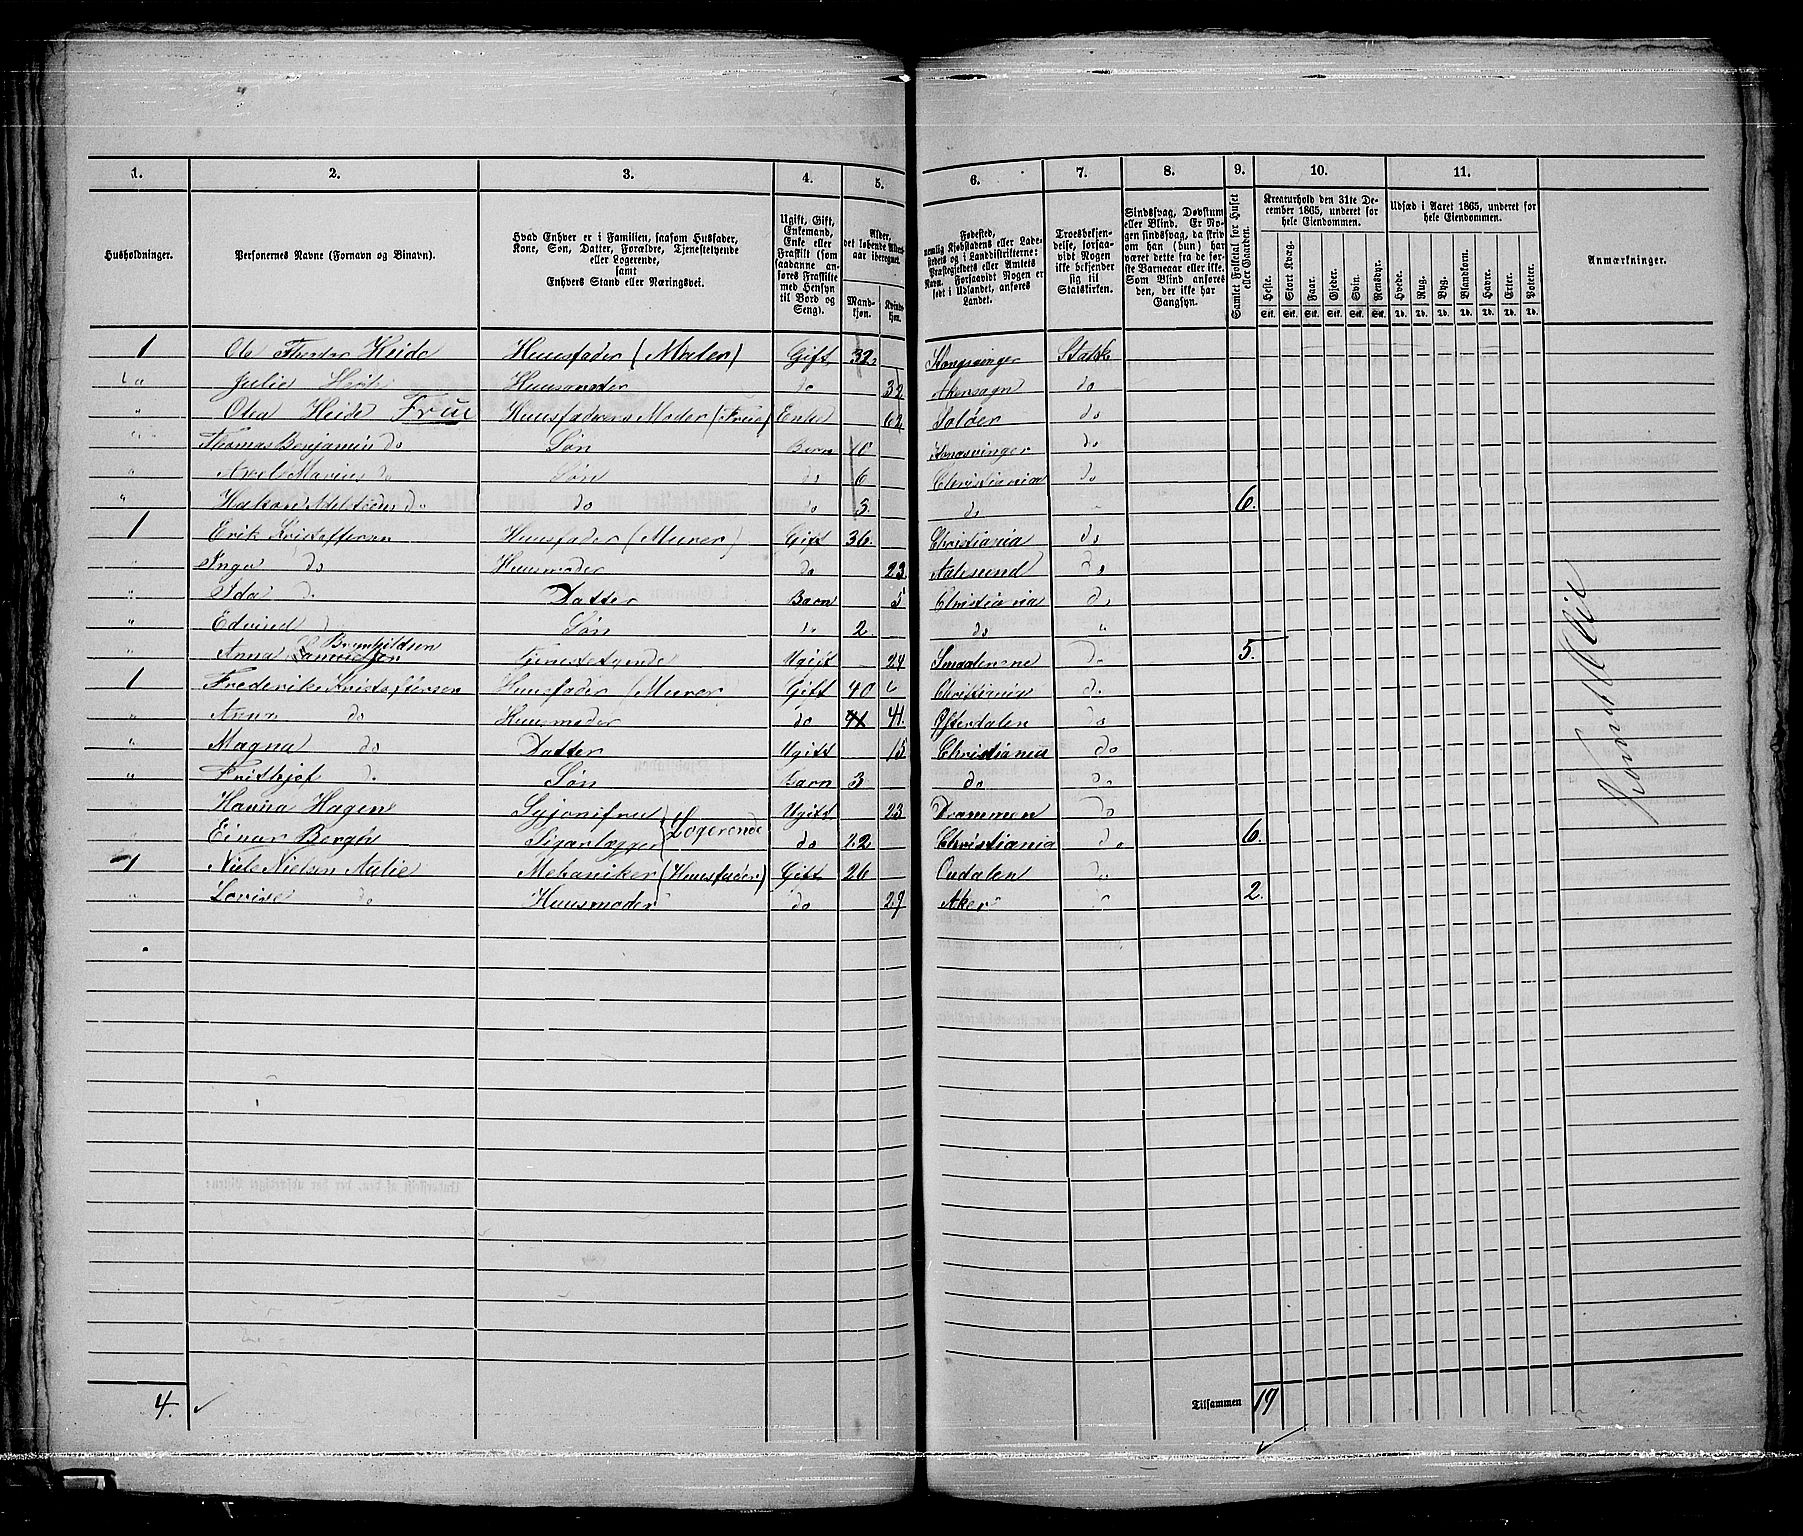 1. 2. 3. 4. 5. 6. 7. 8. 9. 10. 11.
Husholdninger.
Personernes Navne (Fornavn og Binavn).
Hvad Enhver er i Familien, saasom Husfader, Kone, Søn, Datter, Forældre, Tjenestetyende eller Logerende, samt Enhvers Stand eller Næringsvei.
Ugift, Gift, Enkemand, Enke eller Fraskilt (som saadanne anføres Fraskilte med Hensyn til Bord og Seng).
Alder, det løbende Alders-aar iberegnet.
Mandkjøn. Kvindekjøn.
Fødested, nemlig Kjøbstadens eller Ladestedets og i Landdistrikterne: Præstegjeldets eller Amtets Navn. Forsaavidt Nogen er født i Udlandet, anføres Landet.
Troesbekjendelse, forsaavidt Nogen ikke bekjender sig til Statskirken.
Sindssvag, Døvstum eller Blind. Er Nogen sindssvag, da skrives om han (hun) har været dette fra de første Barneaar eller ikke. Som Blind anføres den, der ikke har Gangsyn.
Samlet Folketal for Huset eller Gaarden.
Kreaturhold den 31te December 1865, underet for hele Eiendommen.
Udsæd i Aaret 1865, underet for hele Eiendommen.
Anmærkninger.
Heste. Stort Kvæg. Faar. Gjeder. Svin. Rensdyr. Hvede. Rug. Byg. Blandkorn. Havre. Erter. Poteter.
Stk. Stk. Stk. Stk. Stk. Stk. Td. Td. Td. Td. Td. Td. Td.
1 Ole Theodor Heide Huusfader (Maler) Gift 32. Kongsvinger Statsk
" Julie Heide Huusmoder do 32 Akersogn do
" Olea Heide Frue Huusfaderens Moder (Frue) Enke 62 Soløer do
" Thomas Benjamin do Søn Barn 10 Kongsvinger do
" Axel Marius do Søn do 6 Christiania do
" Hakon do do do 5. do 6.
1 Erik Kristoffersen Huusfader (Murer) Gift 36. Christiania do
" Inga do Huusmoder do 23. Aalesund do
" Ida do Datter Barn 5 Christiania do
" Edvind do Søn do 2. do "
Brynhildsen
" Anna Tjenestetyende Ugift 24 Smaalenene do 5.
1 Frederik Kristoffersen Huusfader (Murer Gift 40 Christiania do
" Anna do Huusmoder do 41. Østerdalen do
" Magna do Datter Ugift 15 Christiania do
" Frithjof do Søn Barn 3 do do
Hanna Hagen Syjomfru Logerende Ugift 23 Drammen do
" Einar Bergby Sigarlægger do 22 Christiania do 6.
1 Niels Nielsen Mehaniker (Huusfader) Gift 26 Oudalen do
" Lovise do Huusmoder do 29 Aker do 2.
4.
Tilsammen 19